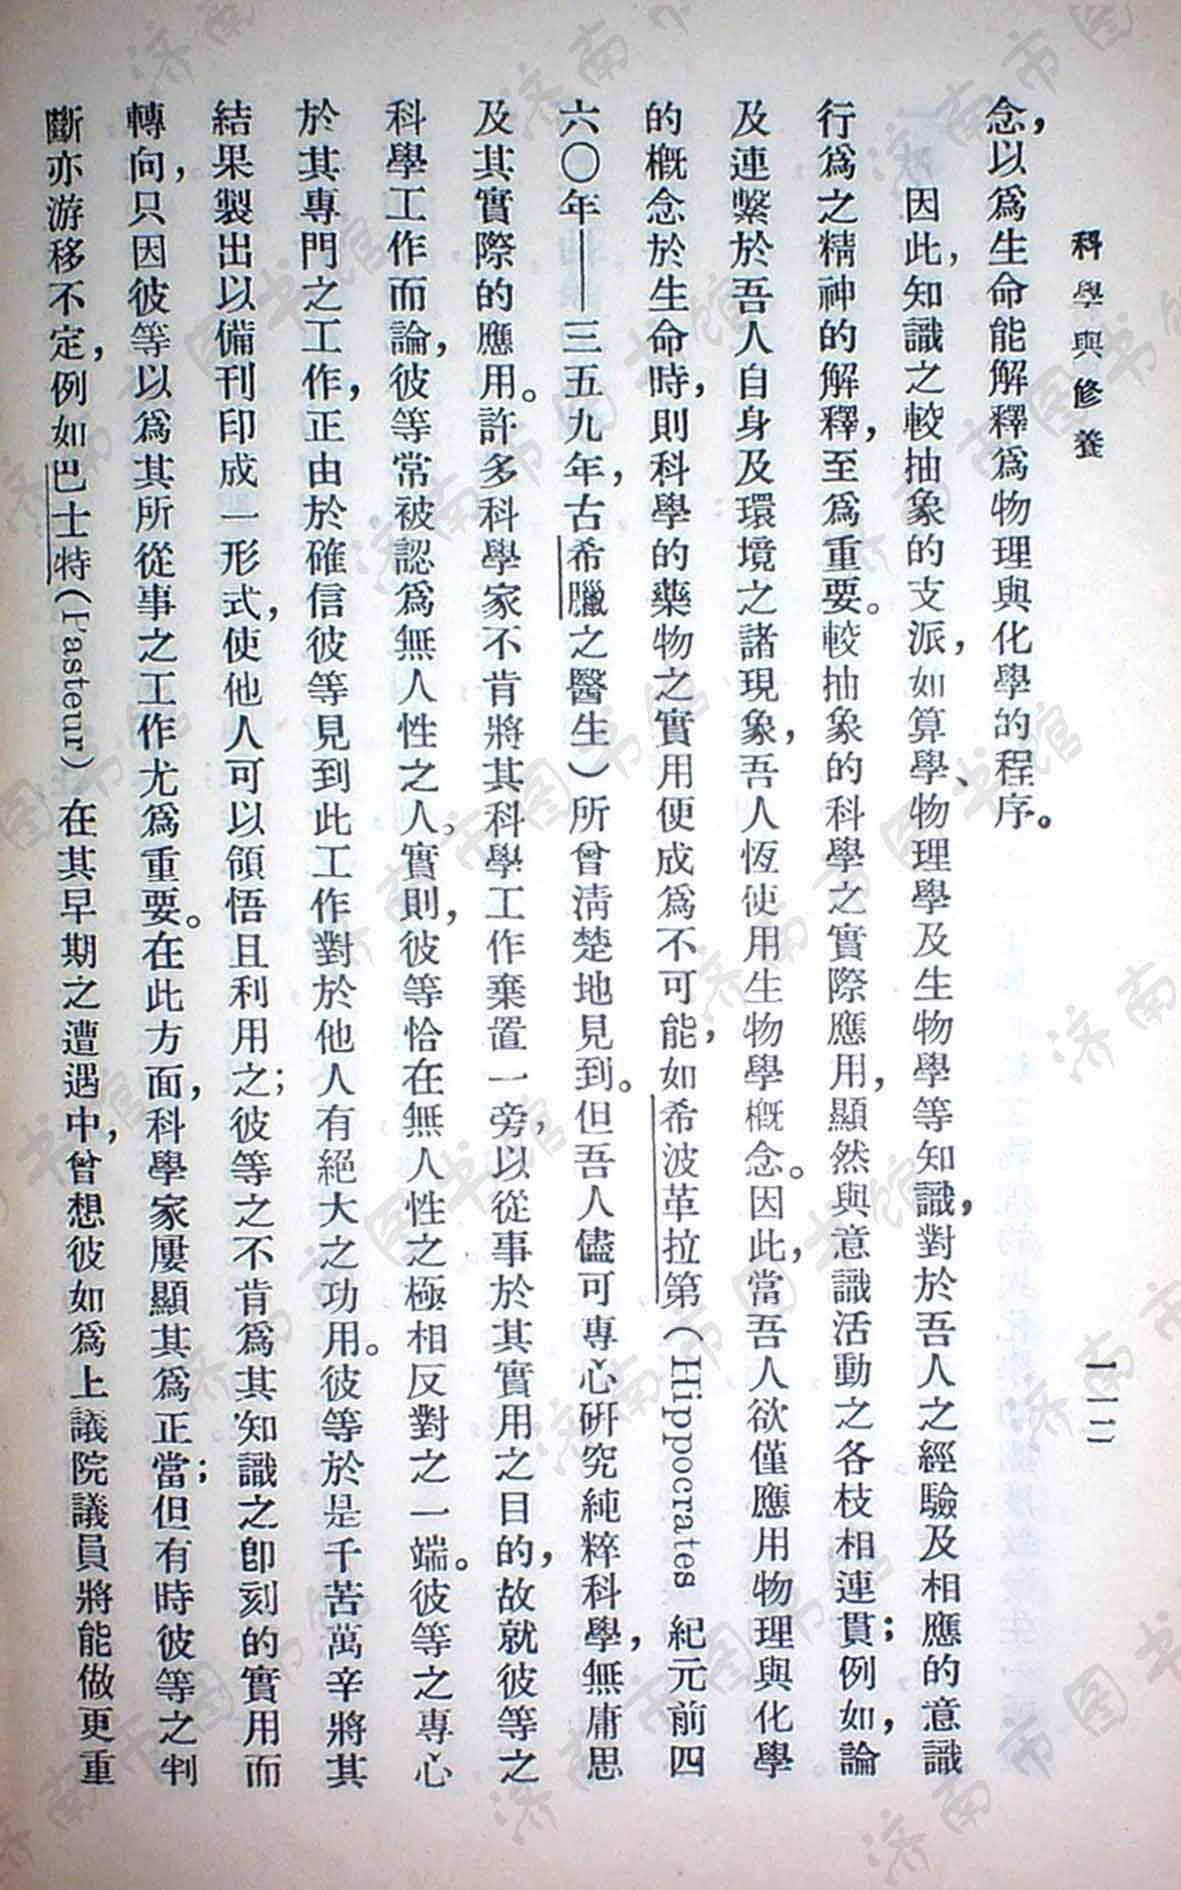 科學與修養
一一二
念，以爲生命能解釋爲物理與化學的程序。
因此，知識之較抽象的支派，如算學、物理學及生物學等知識，對於吾人之經驗及相應的意識
行爲之精神的解釋，至爲重要。較抽象的科學之實際應用，顯然與意識活動之各枝相連貫；例如，論
及連繫於吾人自身及環境之諸現象，吾人恆使用生物學概念。因此，當吾人欲僅應用物理與化學
的概念於生命時，則科學的藥物之實用便成爲不可能，如希波革拉第（Hippocrates 紀元前四
六〇年——三五九年，古希臘之醫生）所曾淸楚地見到。但吾人儘可專心硏究純粹科學，無庸思
及其實際的應用。許多科學家不肯將其科學工作棄置一旁，以從事於其實用之目的，故就彼等之
科學工作而論，彼等常被認爲無人性之人。實則，彼等恰在無人性之極相反對之一端。彼等之專心
於其專門之工作，正由於確信彼等見到此工作對於他人有絕大之功用。彼等於是千苦萬辛將其
結果製出以備刊印成一形式，使他人可以領悟且利用之；彼等之不肯爲其知識之卽刻的實用而
轉向，只因彼等以爲其所從事之工作尤爲重要。在此方面，科學家屢顯其爲正當；但有時彼等之判
斷亦游移不定，例如巴士特（Pasteur）在其早期之遭遇中，曾想彼如爲上議院議員將能做更重
济南市图书馆